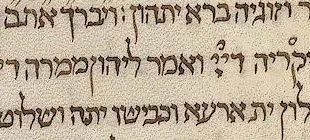 ר וזוגיה ברא יתהון : ויברך את
יקריה דייי ואמר ליהון ממרה די
לון ית ארעא וכבישו יתה ושלוט